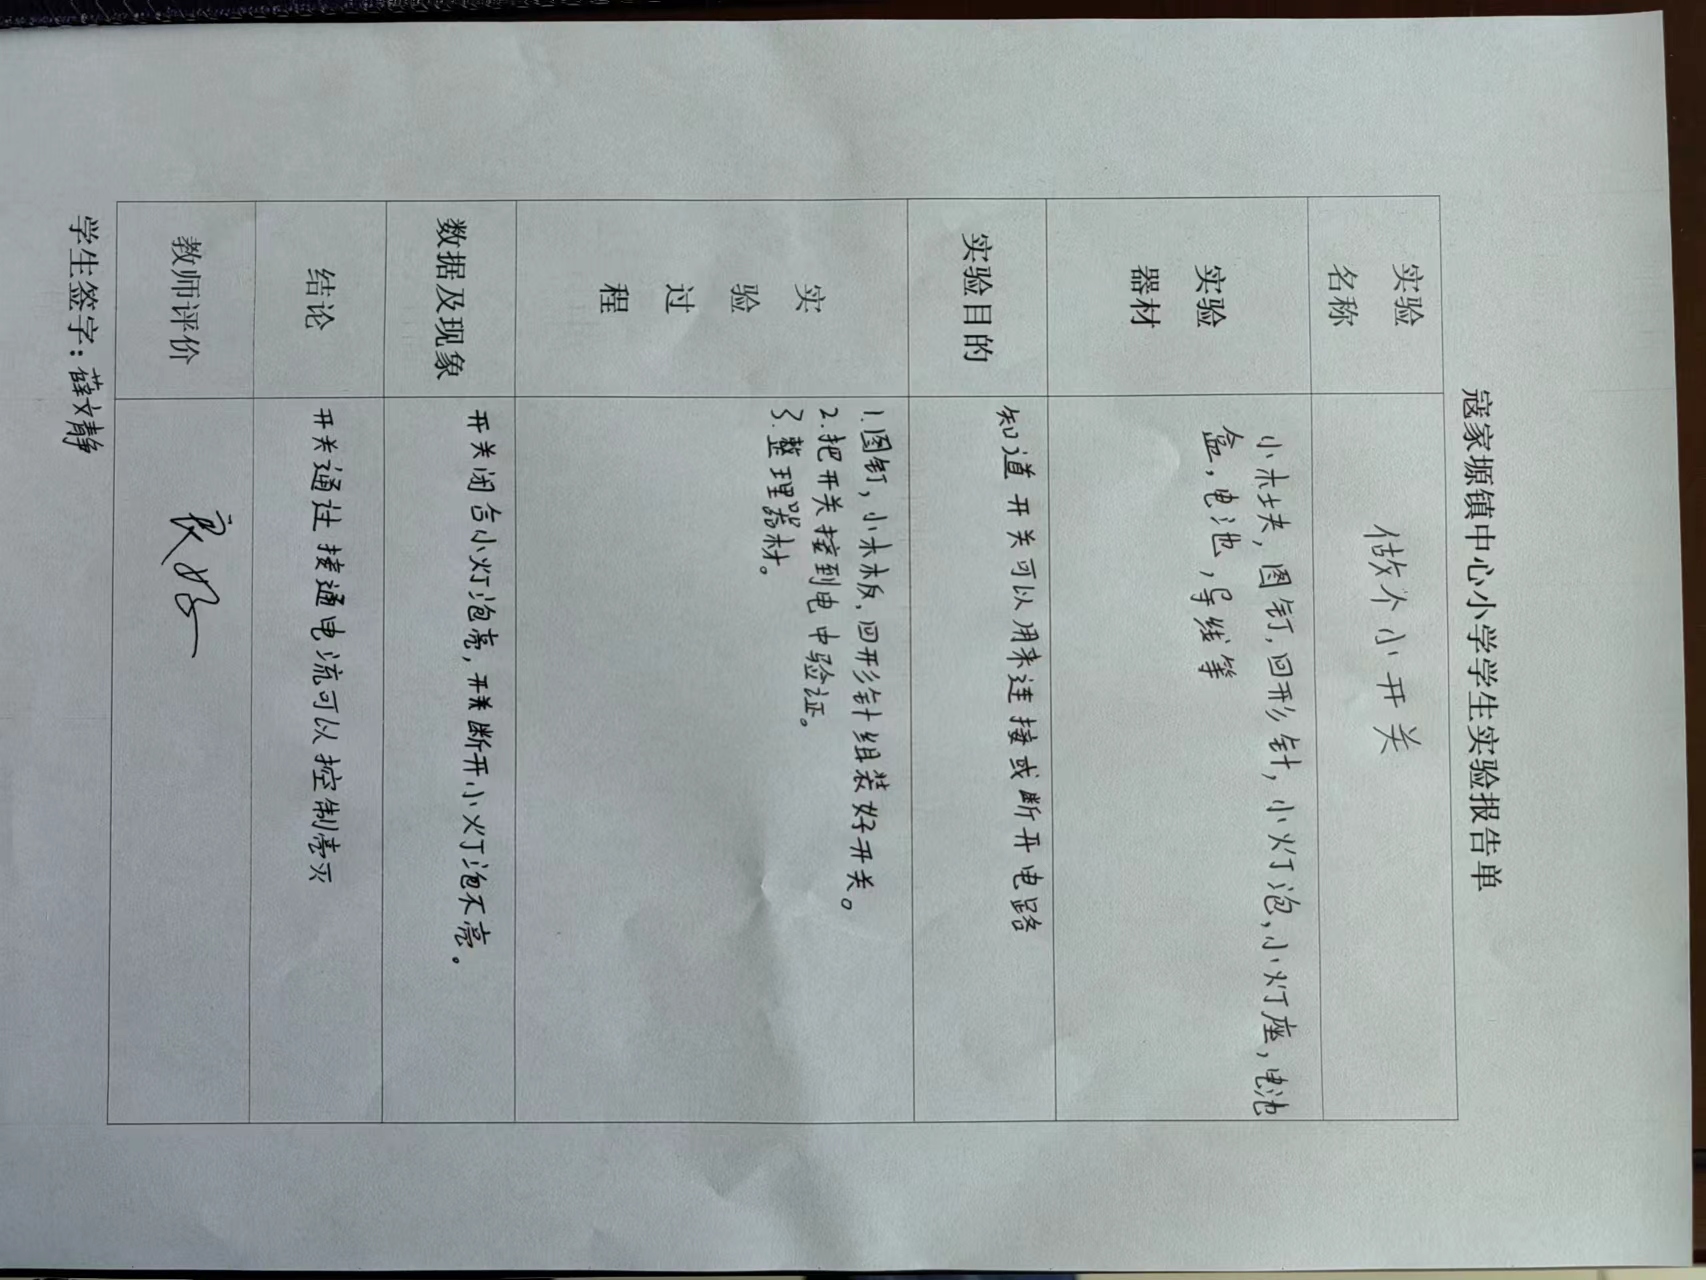 寇家塬镇中心小学学生实验报告单
实验
名称
做个小开关
实验
器材
小木块，图钉，回形针，小灯泡，小灯座，电池
盒，电池，导线等
实验目的
知道开关可以用来连接或断开电路
实
验
过
程
1.图钉，小木板，回形针组装好开关。
2.把开关接到电中验证。
3.整理器材。
数据及现象
开关闭合小灯泡亮，开关断开小灯泡不亮。
结论
开关通过接通电流可以控制亮灭
教师评价
良好
学生签字：薛文静